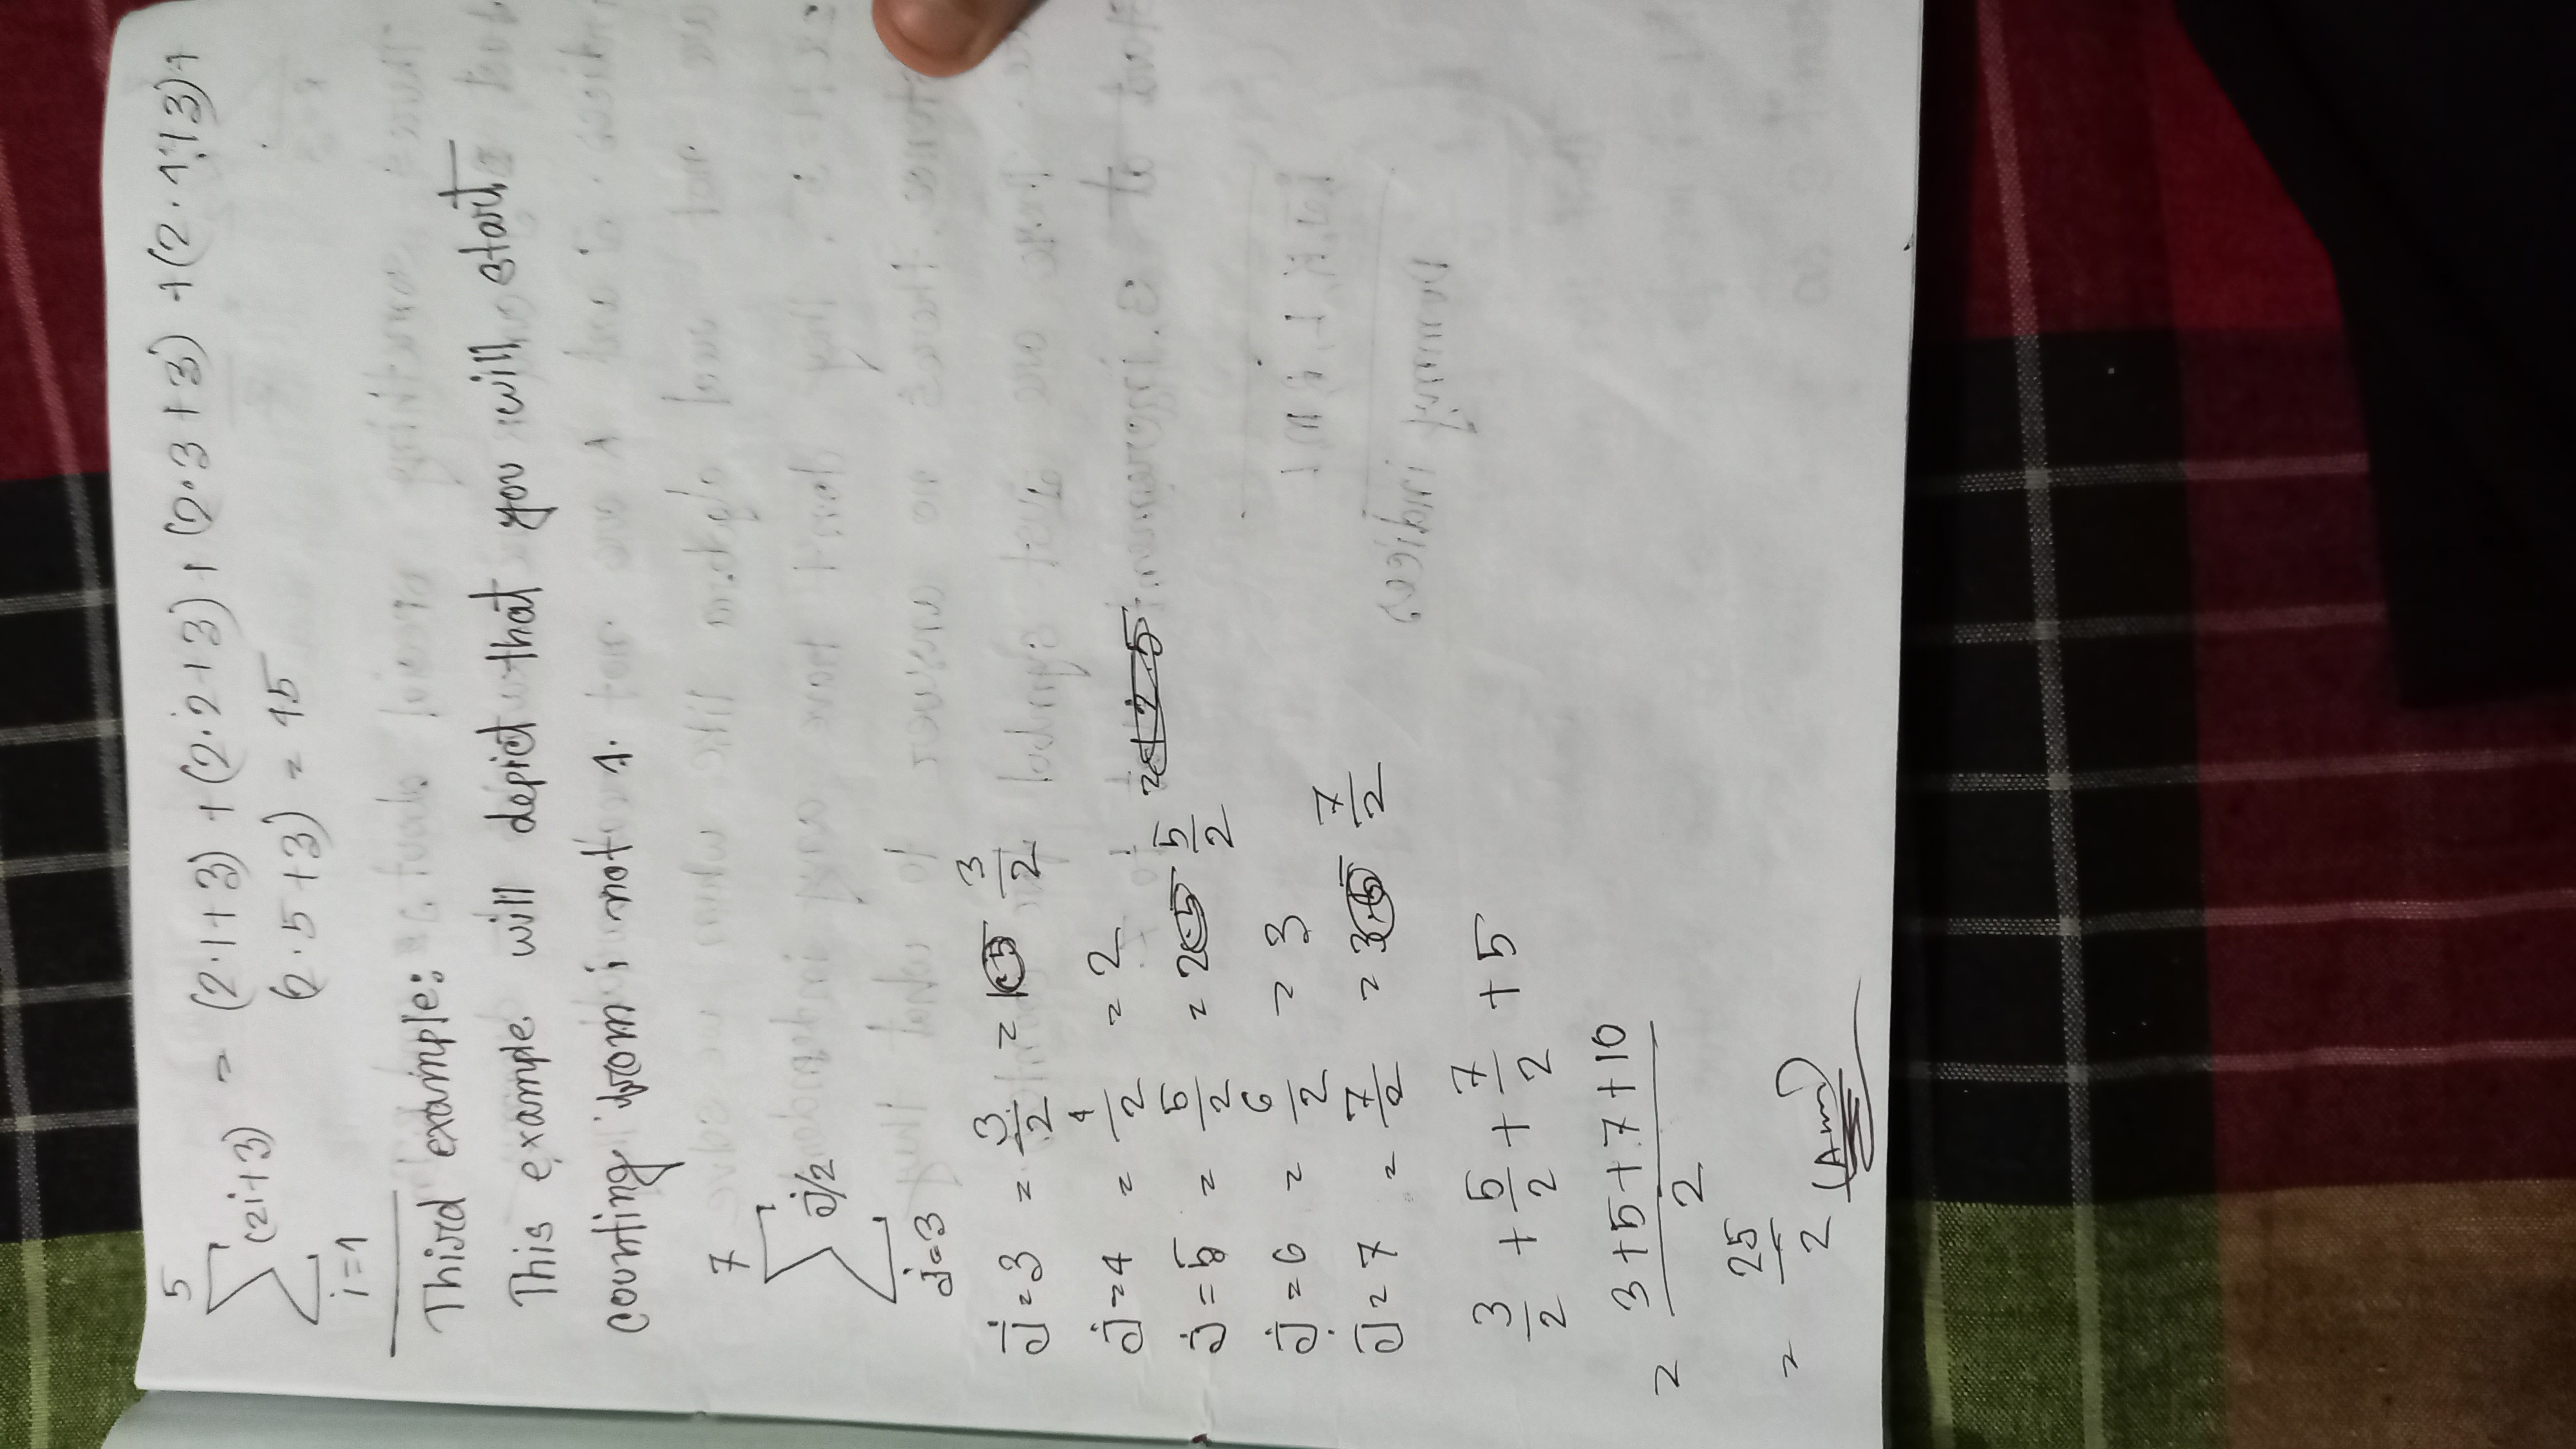 5
∑ (2i+3) = (2·1+3) + (2·2+3) + (2·3+3) + (2·4+3)+
i=1
(2·5+3) = 45
Third example:
This example will depict that you will start
counting from i not 1.
7
∑ j/2
j=3
j=3 = 3/2 = 3/2
j=4 = 4/2 = 2
j=5 = 5/2 = 2 5/2
j=6 = 6/2 = 3
j=7 = 7/2 = 3 7/2
3/2 + 5/2 + 7/2 + 5
= 3+5+7+10/2
= 25/2 (Ans)